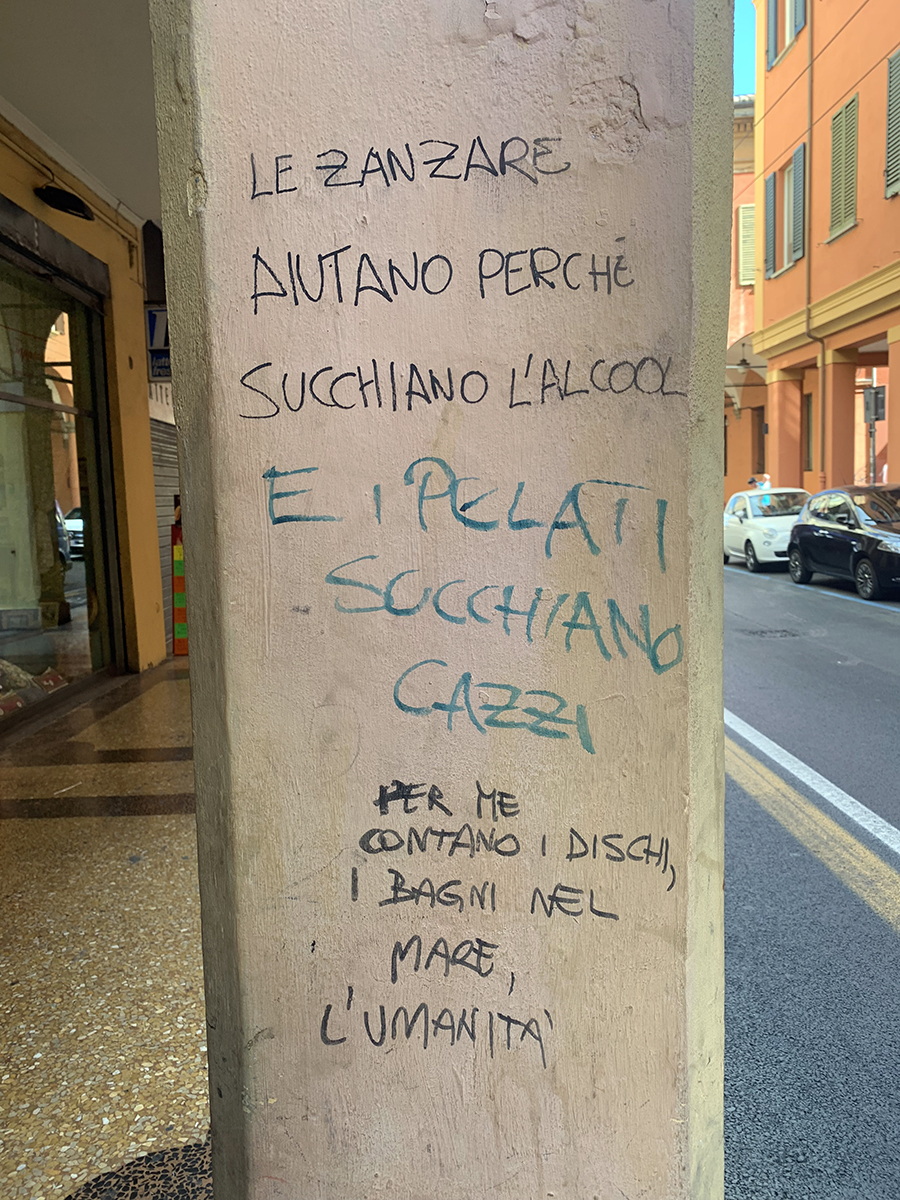 LE ZANZARE
AIUTANO PERCHÉ
SUCCHIANO L'ALCOOL
E I PELATI
SUCCHIANO
CAZZI
PER ME
CONTANO I DISCHI,
I BAGNI NEL
MARE,
L'UMANITA'